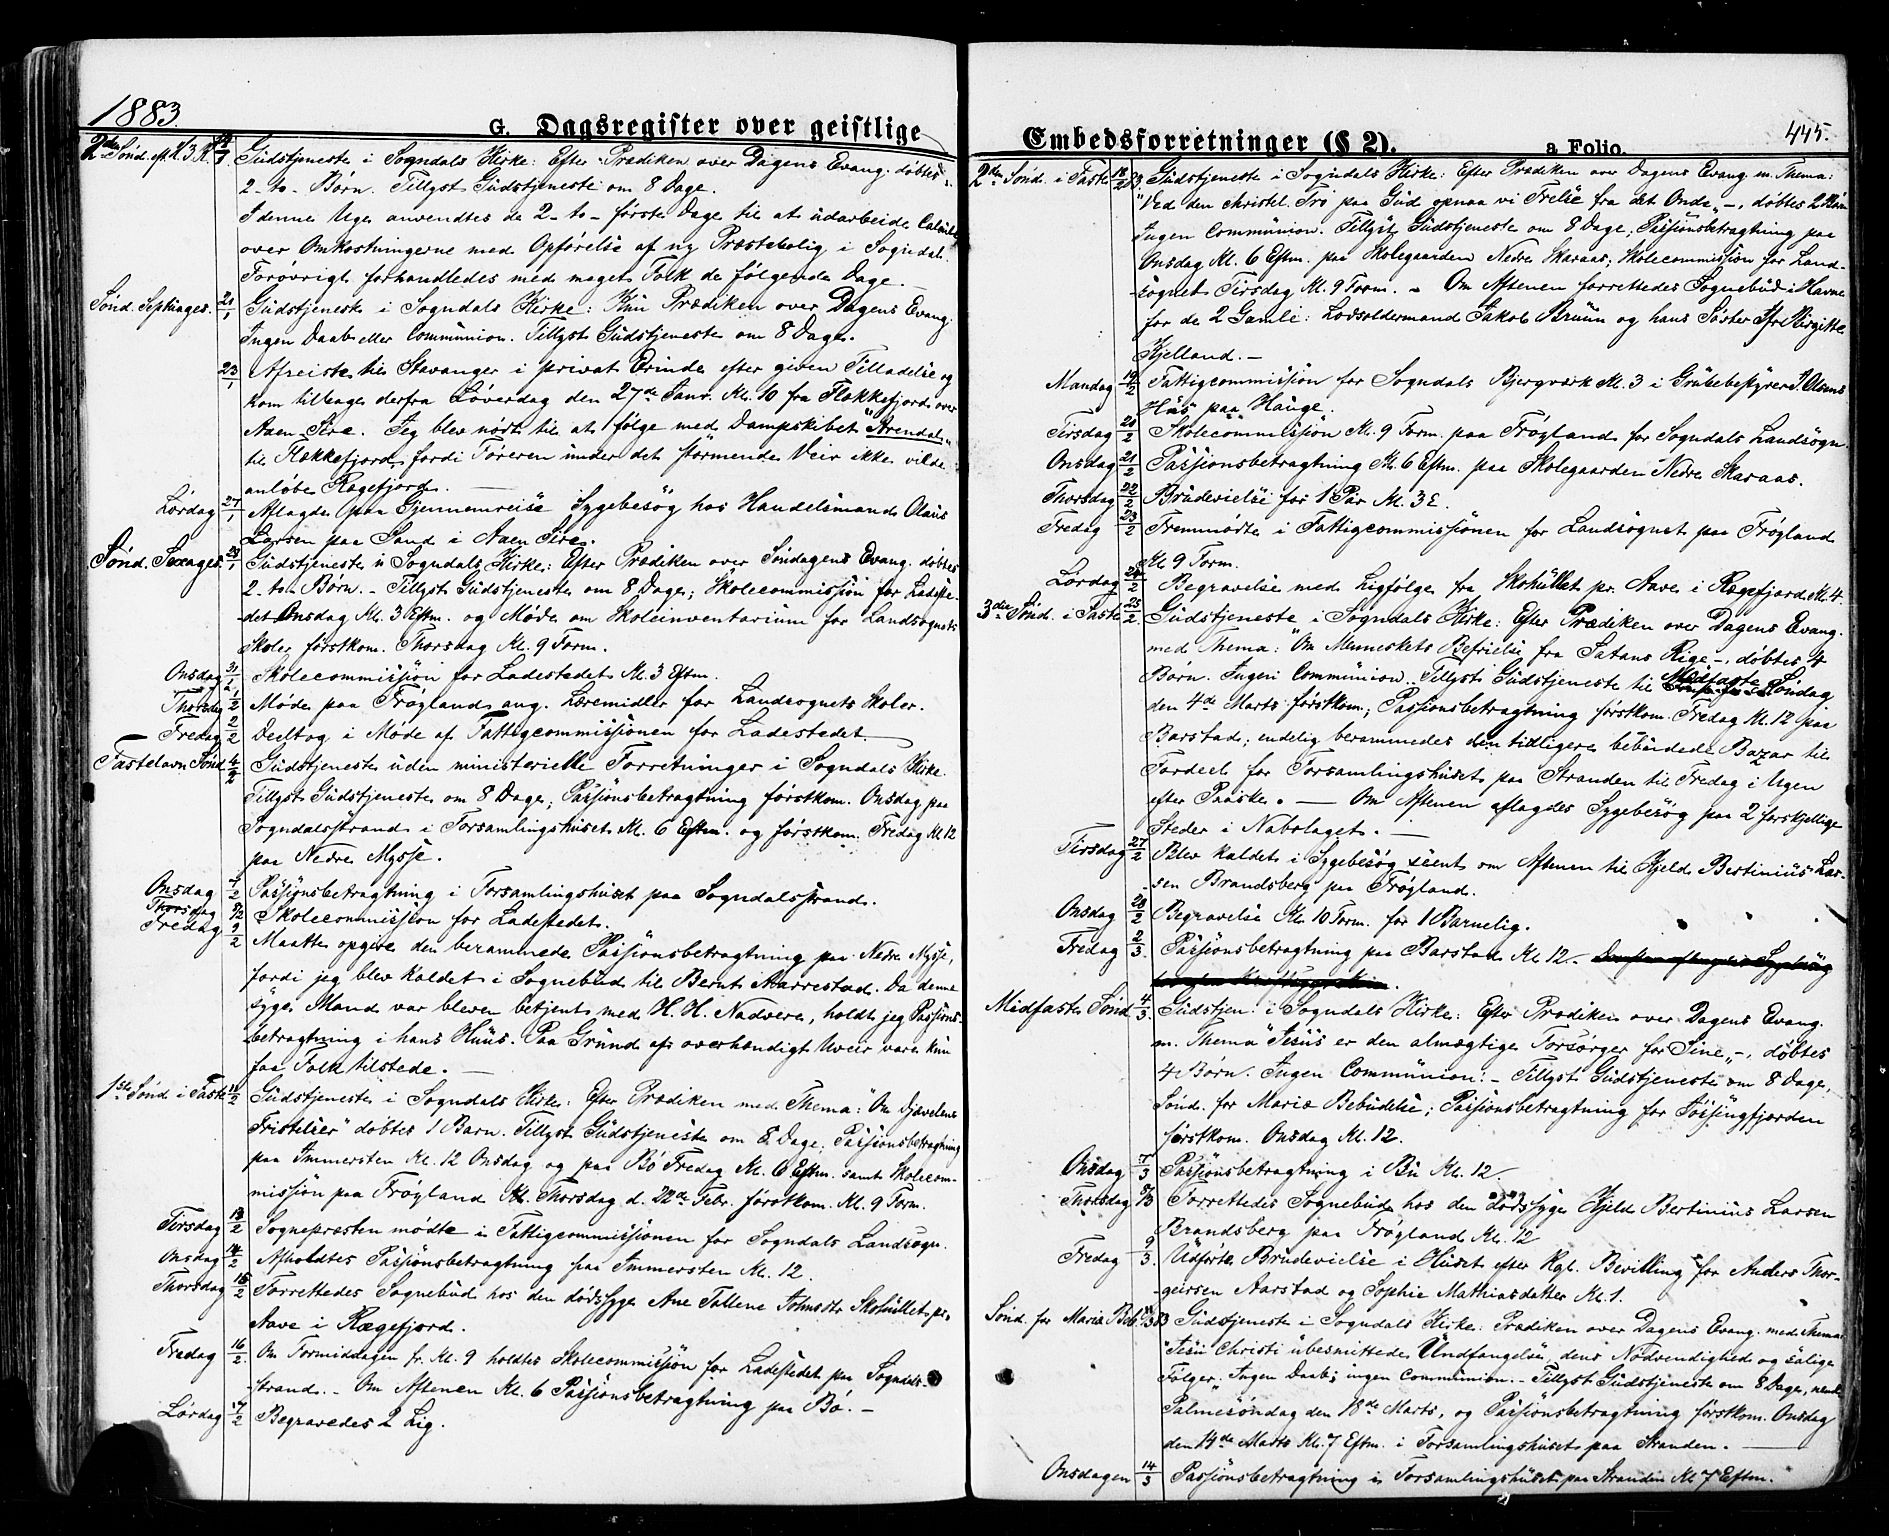 1883.
G. Dagsregister over geistlige
2den Sønd. ef. H. 3 K. 14/1 Gudstjeneste i Sogndals Kirke: Efter Prædiken over Dagens Evang. døbtes
2 - to - Børn. Tillyst Gudstjeneste om 8 Dage.
I denne Uge anvendtes de 2 - to - første Dage til at udarbeide
over Omkostningerne med Opførelse af ny Præstebolig i Sogndal.
Forøvrigt forhandledes med meget Folk de følgende Dage. -
Sønd. Septuages. 21/1 Gudstjeneste i Sogndals Kirke: Kun Prædiken over Dagens Evang.
Ingen Daab eller Communion. Tillyst Gudstjeneste om 8 Dage.
23/1 Afreiste til Stavanger i privat Erinde efter given Tilladelse og
kom tilbage derfra Løverdag den 27de Janr. Kl. 10 fra Flekkefjord over
Aaen-Sire. Jeg blev nødt til at følge med Dampskibet "Arendal"
til Flekkefjord, fordi Føreren under det stormende Veir ikke vilde
anløbe Rægefjord.
Lørdag 27/1 Aflagdes paa Gjennemreise Sygebesøg hos Handelsmand Olaus
Larsen paa Sand i Aaen Sire.
Sønd. Sexages. 28/1 Gudstjeneste i Sogndals Kirke: Efter Prædiken over Søndagens Evang. døbtes
2 - to - Børn. - Tillyst Gudstjeneste om 8 Dage; Skolecommission for Ladeste-
det Onsdag Kl. 3 Eftm. og Møde om Skoleinventarium for Landsognets
Skoler førstkom. Thorsdag Kl. 9 Form.
Onsdag 31/1 Skolecommission for Ladestedet Kl. 3 Eftm.
Thorsdag 1/2 Møde paa Frøyland ang. Læremidler for Landsognets Skoler.
Fredag 2/2 Deeltog i Møde af Fattigcommissionen for Ladestedet.
Fastelavn Sønd. 4/2 Gudstjeneste uden ministerielle Forretninger i Sogndals Kirke.
Tillyst Gudstjeneste om 8 Dage; Passionsbetragtning førstkom. Onsdag paa
Sogndalsstrand i Forsamlingshuset Kl. 6 Eftm. og førstkom. Fredag Kl 12
paa Nedre Mysse.
Onsdag 7/2 Passionsbetragtning i Forsamlingshuset paa Sogndalsstrand.
Thorsdag 8/2 Skolecommission for Ladestedet.
Fredag 9/2 Maatte opgive den berammede Passionsbetragtning paa Nedre Mysse,
fordi jeg blev kaldet i Sognebud til Bernt Aarrestad. Da denne
syge Mand var bleven betjent med H. H. Nadvere, holdt jeg Passions-
betragtning i hans Huus. Paa Grund af overhændigt Uveir vare kun
faa Folk tilstede. -
1ste Sønd i Faste 11/2 Gudstjeneste i Sogndals Kirke: Efter Prædiken med Thema: "Om Djævelens
Fristelser" døbtes 1 Barn. Tillyst Gudstjeneste om 8 Dage; Passionsbetragtning
paa Immersten Kl. 12 Onsdag og paa Bø Fredag Kl. 6 Eftm. samt Skolecom-
mission paa Frøyland Kl. Thorsdag d. 22de Febr. førstkom. Kl. 9 Form.
Tirsdag 13/2 Sognepræsten mødte i Fattigcommissionen for Sogndals Landsogn.
Onsdag 14/2 Afholdtes Passionsbetragtning paa Immersten Kl. 12.
Thorsdag 15/2 Forrettedes Sognebud hos den dødssyge Ane Tallene Skohullet pr.
Aave i Rægefjord.
Fredag 16/2 Om Formiddagen fr. Kl. 9 holdtes Skolecommission for Ladestedet paa Sogndals-
strand. - Om Aftenen Kl. 6 Passionsbetragtning paa Bø. -
Lørdag 17/2 Begravedes 2 Lig.
Embedsforretninger (§ 2). a Folio. 445.
2den Sønd. i Faste 18/2 83. Gudstjeneste i Sogndals Kirke: Efter Prædiken over Dagens Evang. m. Thema:
"Ved den christel. Tro paa Gud opnaa vi Frelse fra det Onde" -, døbtes 2 Børn
Ingen Communion. Tillyst Gudstjeneste om 8 Dage; Passionsbetragtning paa
Onsdag Kl. 6 Eftm. paa Skolegaarden Nedre Skaraas; Skolecommission for Land-
sognet Tirsdag Kl. 9 Form. - Om Aftenen forrettedes Sognebud i Havne
for de 2 Gamle: Lodsoldermand Jakob Bruun og hans Søster Birgitte
Kjelland. -
Mandag 19/2 Fattigcommission for Sogndals Bjergværk Kl. 3 i Grubebestyrer Olsens
Hus paa Hauge.
Tirsdag 20/2 Skolecommission Kl. 9 Form. paa Frøyland for Sogndals Landsogn
Onsdag 21/2 Passionsbetragtning Kl. 6 Eftm. paa Skolegaarden Nedre Skaraas.
Thorsdag 22/2 Brudevielse for 1 Par Kl. 3 E.
Fredag 23/2 Fremmødte i Fattigcommissionen for Landsognet paa Frøyland
Kl. 9 Form.
Lørdag 24/2 Begravelse med Ligfølge fra Skohullet pr. Aave i Rægefjord Kl. 4.
3die Sønd. i Faste 25/2 Gudstjeneste i Sogndals Kirke: Efter Prædiken over Dagens Evang.
med Thema: "Om Menneskets Befrielse fra Satans Rige" -, døbtes 4
Børn. Ingen Communion. Tillyst Gudstjeneste til Midfaste Søndag
den 4de Marts førstkom; Passionsbetragtning førstkom. Fredag Kl. 12 paa
Barstad; endelig berammedes den tidligere bebudede Bazar til
Fordeel for Forsamlingshuset paa Stranden til Fredag i Ugen
efter Paaske. - Om Aftenen aflagdes Sygebesøg paa 2 forskjellige
Steder i Nabolaget. -
Tirsdag 27/2 Blev kaldet i Sygebesøg seent om Aftenen til Kjeld Bertinius Lar-
sen Brandsberg paa Frøyland.
Onsdag 28/2 Begravelse Kl. 10 Form. for 1 Barnelig.
Fredag 2/3 Passionsbetragtning paa Barstad Kl. 12.
Midfaste Sønd. 4/3 Gudstjen. i Sogndals Kirke: Efter Prædiken over Dagens Evang.
m. Thema "Jesus er den almægtige Forsørger for Sine" -, døbtes
4 Børn. Ingen Communion. - Tillyst Gudstjeneste om 8 Dage,
Sønd. for Mariæ Bebudelse; Passionsbetragtning for Jøssingfjorden
førstkom. Onsdag Kl. 12.
Onsdag 7/3 Passionsbetragtning i Bu Kl. 12.
Thorsdag 8/3 Forrettedes Sognebud hos den dødssyge Kjeld Bertinius Larsen
Brandsberg paa Frøyland Kl. 12
Fredag 9/3 Udførte Brudevielse i Huset efter Kgl. Bevilling for Anders Thor-
geirsen Aarstad og Sophie Mathiasdatter Kl. 1.
Sønd. for Mariæ Beb. 11/3 83 Gudstjeneste i Sogndals Kirke: Prædiken over Dagens Evang. med Thema
"Jesu Christi ubesmittede Undfangelse, dens Nødvendighed og salige
Følger". Ingen Daab; ingen Communion. - Tillyst Gudstjeneste om 8 Dage,
Palmesøndag den 18de Marts, og Passionsbetragtning førstkom. Onsdag
den 14de Marts Kl. 7 Eftm. i Forsamlingshuset paa Stranden. -
Onsdagen 14/3 Passionsbetragtning i Forsamlingshuset paa Stranden Kl 7 Eftm.